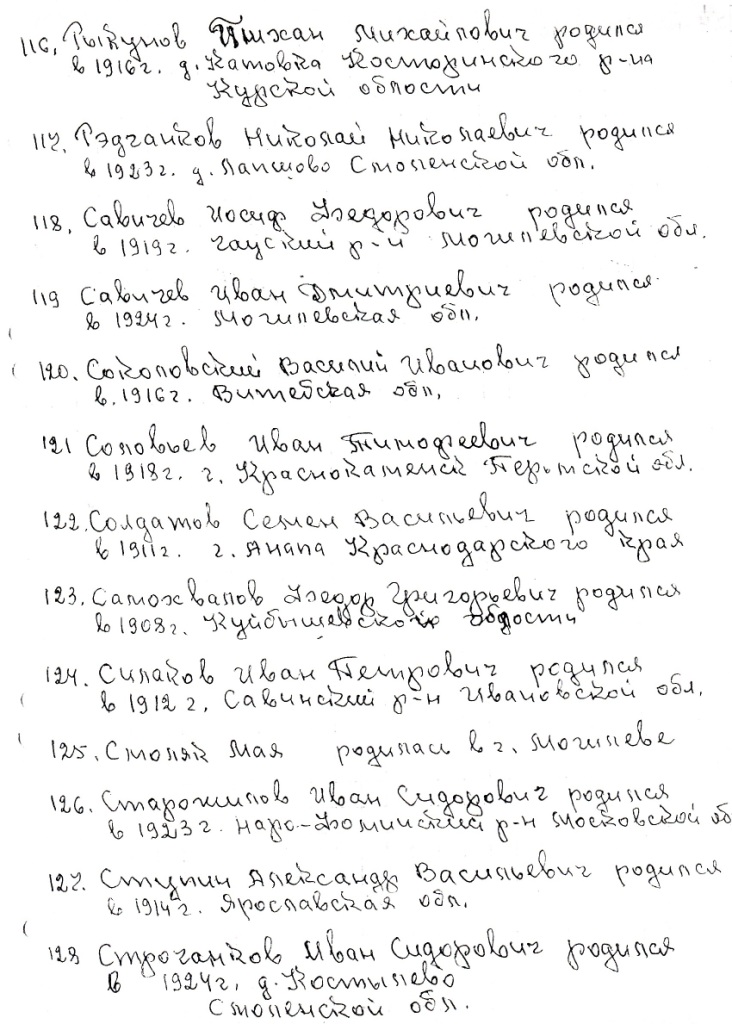 116. Рыкунов Тихан Михайлович родился
в 1916г. д. Катовка Косторинского р-на
Курской области
117. Рэдчанков Николай Николаевич родился
в 1923г. д. Лапшово Смоленской обл.
118. Савичев Иосиф Федорович родился
в 1919г. Чауский р-н Могилевской обл.
119 Савичев Иван Дмитриевич родился
в 1924г. Могилевская обл.
120. Соколовский Василий Иванович родился
в. 1916г. Витебская обл.
121 Соловьев Иван Тимофеевич родился
в 1918г. г. Краснокаменск Перьмской обл.
122. Солдатов Семен Васильевич родился
в 1911г. г. Анапа Краснодарского края
123. Самохвалов Федор Григорьевич родился
в 1908г. Куйбышевской области
124. Силаков Иван Петрович родился
в 1912 г. Савинский р-н Ивановской обл.
125. Столяк Мая родилась в г. Могилеве
126. Старожилов Иван Сидорович родился
в 1923г. Наро-Фоминский р-н Московской об
127. Ступин Александр Васильевич родился
в 1914г. Ярославская обл.
128 Строчанков Иван Сидорович родился
в 1924г. д. Костылево
Смоленской обл.